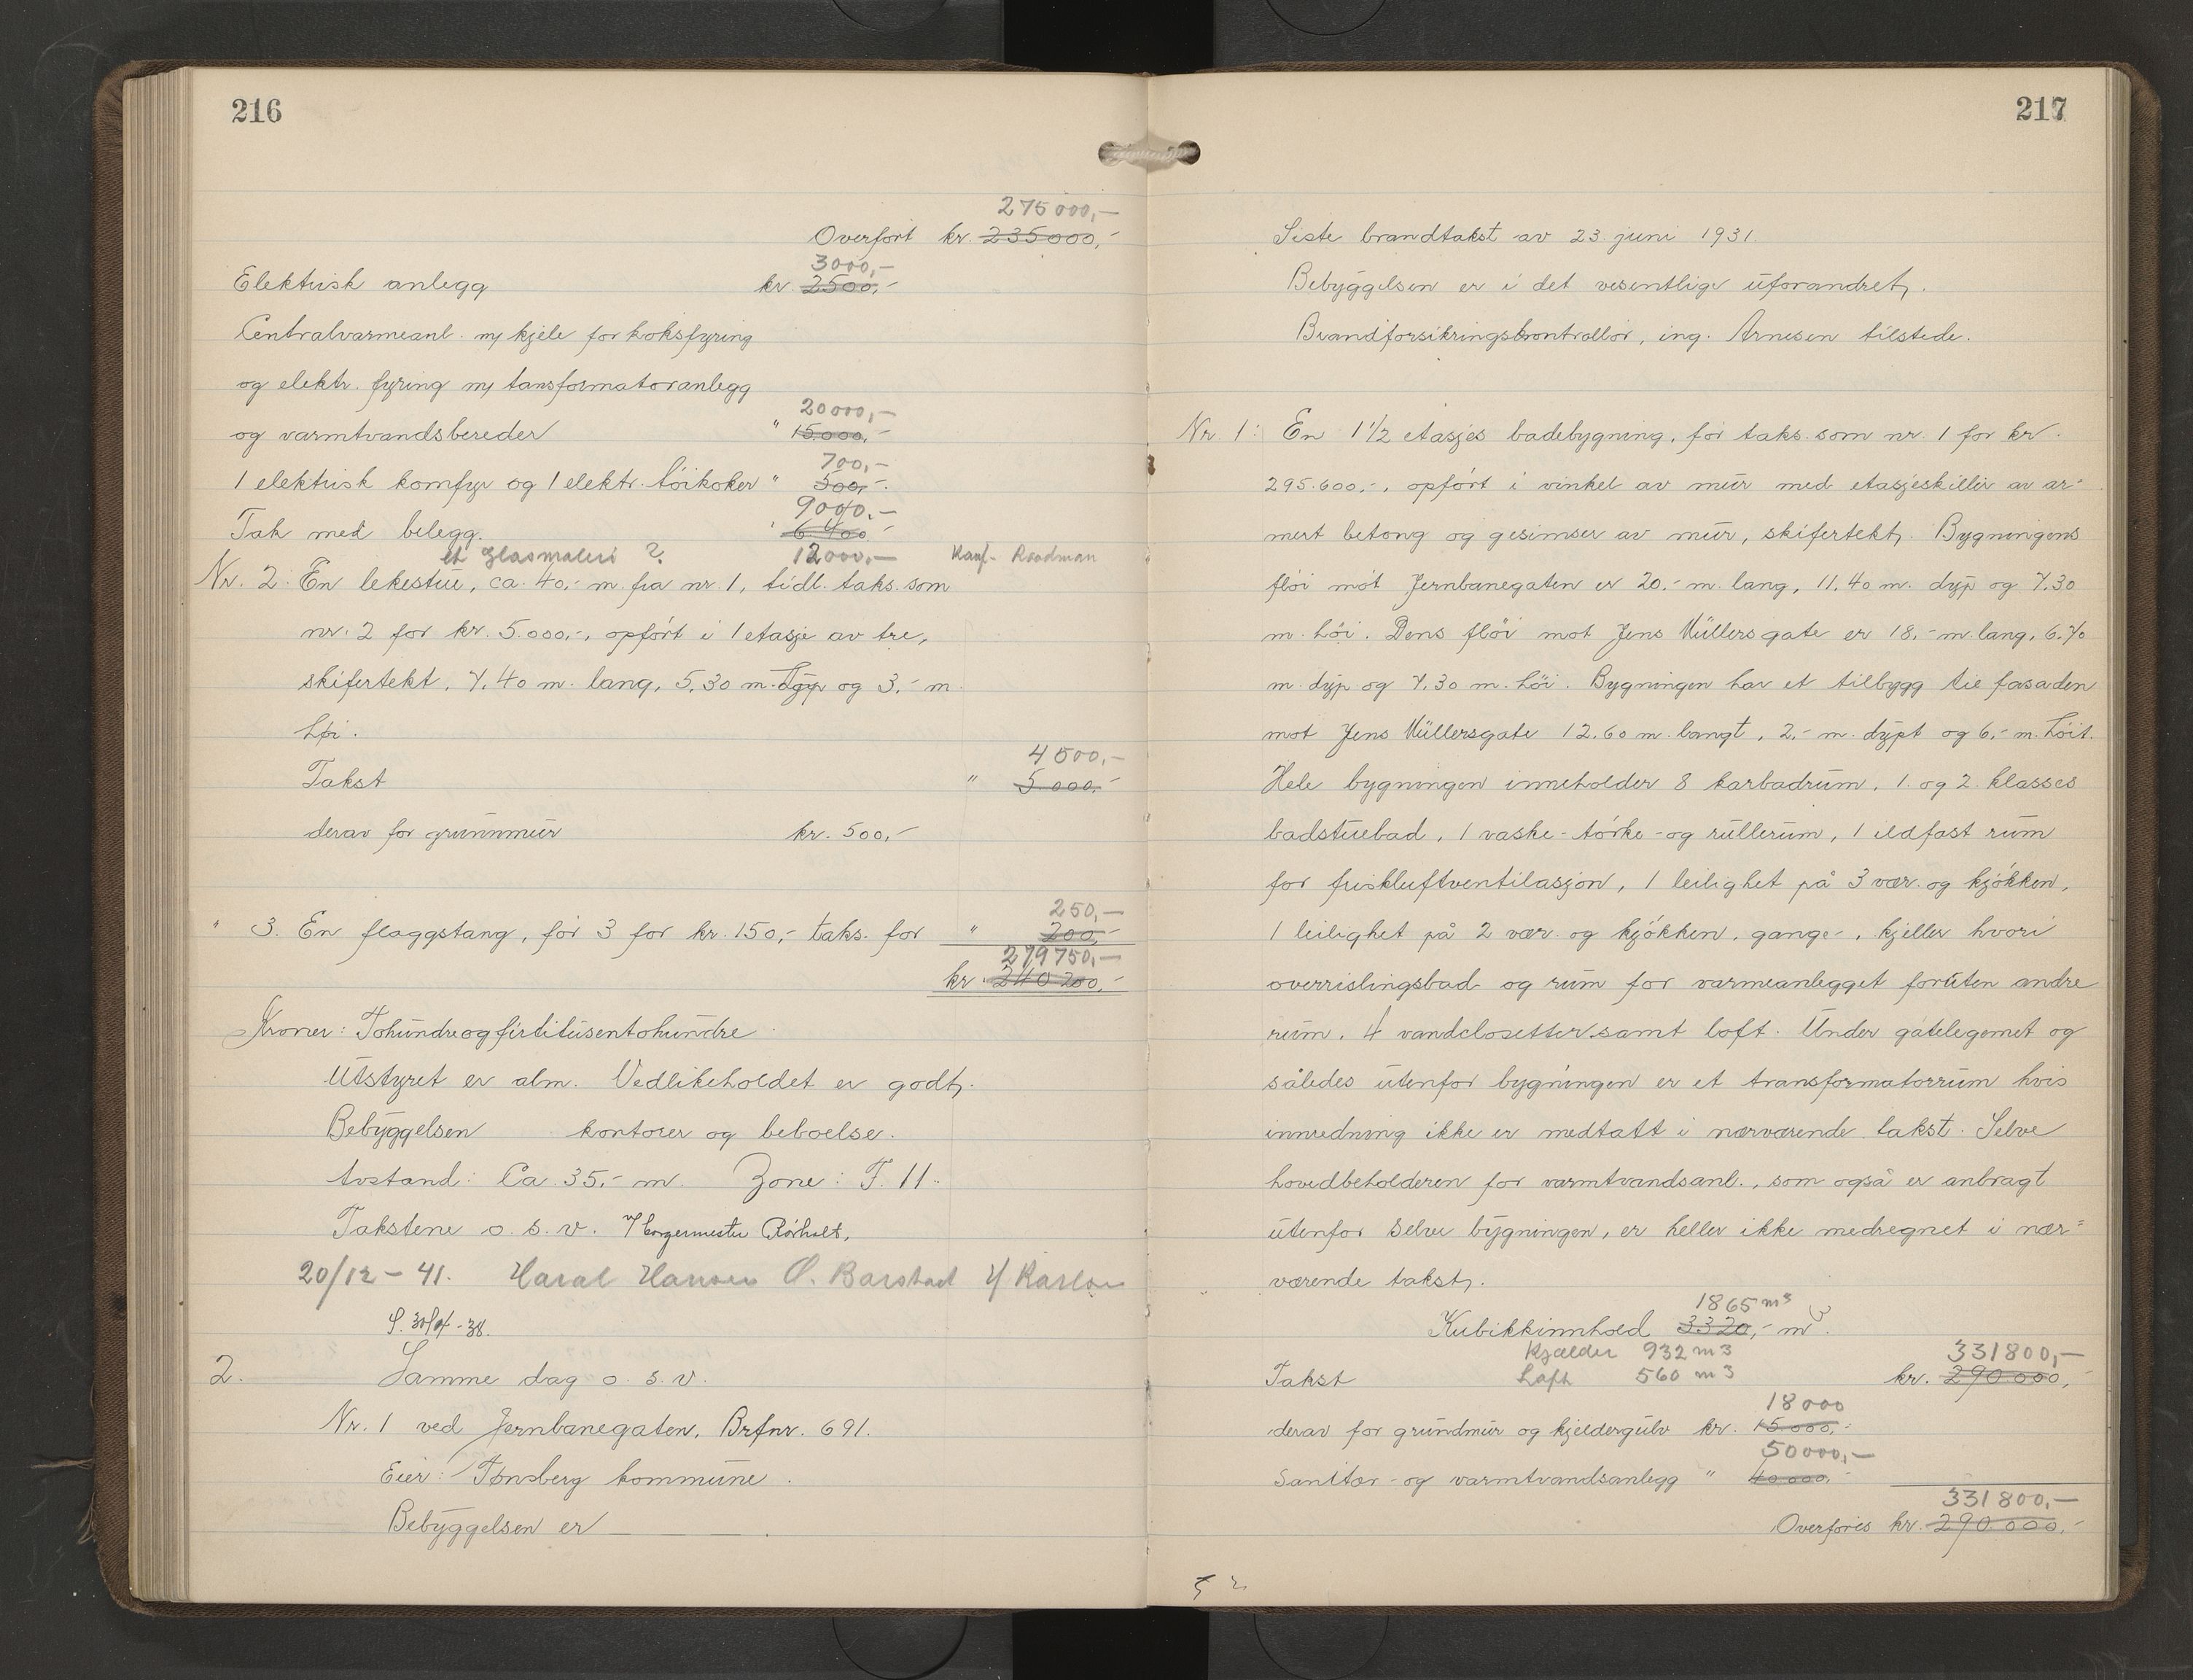 216
275000,-
Overført kr. 235000,-
3000,-
Elektrisk anlegg kr. 2500,-
Centralvarmeanl. m/ kjele for koksfyring
og elektr. fyring m/ tansformatoranlegg
20000,-
og varmtvandsbereder " 15.000,-
700,-
1 elektrisk komfyr og 1 elektr. tøikoker " 500,-.
9000,-
Tak med belegg. " 6400
et Glasmaleri ? 12000,-
Nr. 2. En lekestue, ca. 40,- m. fra nr. 1, tidl. taks. som
nr. 2 for kr. 5.000,-, opført i 1 etasje av tre,
skifertekt, 7,40 m. lang, 5,30 m. dyp og 3,- m.
høi.
4500,-
Takst " 5.000,-
derav for grunnmur kr. 500,-
250,-
" 3. En flaggstang, før 3 for kr. 150,- taks. for " 200,-
279750,-
kr. 240200,-
Kroner: Tohundreogførtitusentohundre
Utstyret er alm. Vedlikeholdet er godt.
Bebyggelsen kontorer og beboelse.
Avstand: Ca. 35,- m. Zone: F. 11.
Takstene o. s. v. Borgermester Rørholt,
20/12 - 41. Haral Hansen O. Barstad
2. Samme dag o. s. v.
Nr. 1 ved Jernbanegaten, Brfnr. 691.
Eier: Tønsberg kommune.
Bebyggelsen er
217
Siste brandtakst av 23. juni 1931.
Bebyggelsen er i det vesentlige uforandret.
Brandforsikringskontrollør, ing. Arnesen tilstede.
Nr. 1: En 1 1/2 etasjes badebygning, før taks. som nr. 1 for kr.
295.600,-, opført i vinkel av mur med etasjeskiller av ar=
mert betong og gesimser av mur, skifertekt. Bygningens
fløi mot Jernbanegaten er 20,- m. lang, 11,40 m. dyp og 7,30
m. høi. Dens fløi mot Jens Müllers gate er 18,- m. lang, 6,70
m. dyp og 7,30 m. høi. Bygningen har et tilbygg til fasaden
mot Jens Müllersgate 12,60 m. langt, 2,- m. dypt og 6,- m. høit.
Hele bygningen inneholder 8 karbadrum, 1. og 2. klasses
badstuebad, 1 vaske- tørke- og rullerum, 1 ildfast rum
for friskluftventilasjon, 1 leilighet på 3 vær. og kjøkken,
1 leilighet på 2 vær. og kjøkken, gange-, kjeller hvori
overrislingsbad og rum for varmeanlegget foruten andre
rum, 4 vandclosetter samt loft. Under gatelegemet og
således utenfor bygningen er et transformatorrum hvis
innredning ikke er medtatt i nærværende takst. Selve
hovedbeholderen for varmtvandsanl., som også er anbragt
utenfor selve bygningen, er heller ikke medregnet i nær=
værende takst.
1865 m3
Kubikkinnhold 3320,- m3.
Kjælder 932 m3
331800,-
Takst Loft 560 m3 kr. 290.000,-
18000
derav for grundmur og kjeldergulv kr. 15.000,-
50000,-
Sanitær- og varmtvandsanlegg " 40.000,-
331800,-
Overføres kr. 290.000,-